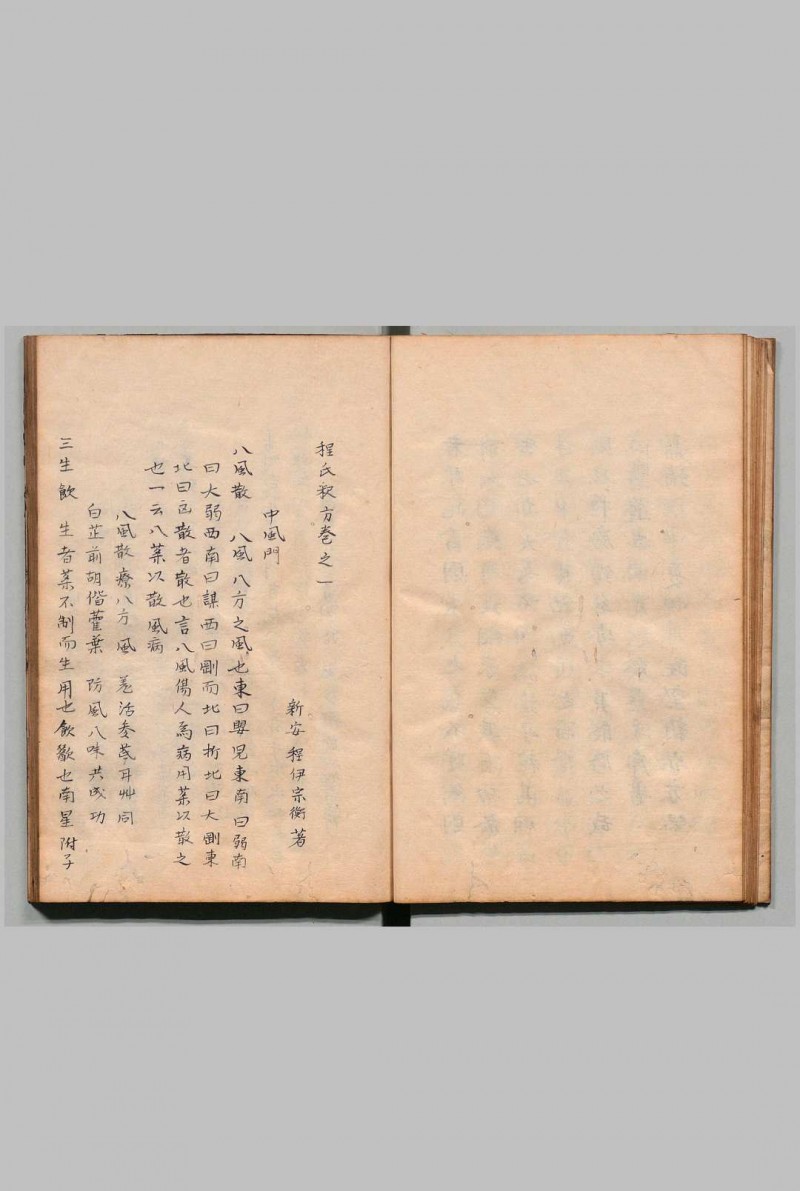 程氏釈方卷之一
新安程伊宗衡著
中風門
八風散 八風八方之風也東曰嬰兒東南曰弱南
曰大弱西南曰謀西曰剛而北曰折北曰大剛東
北曰凶散者散也言八風傷人為病用薬以散之
也一云八薬以散風病
八風散療八方風 羗活参芪耳艸同
白芷前胡偕藿葉 防風八味共成功
三生飮 生者薬不制而生用也飮歠也南星附子